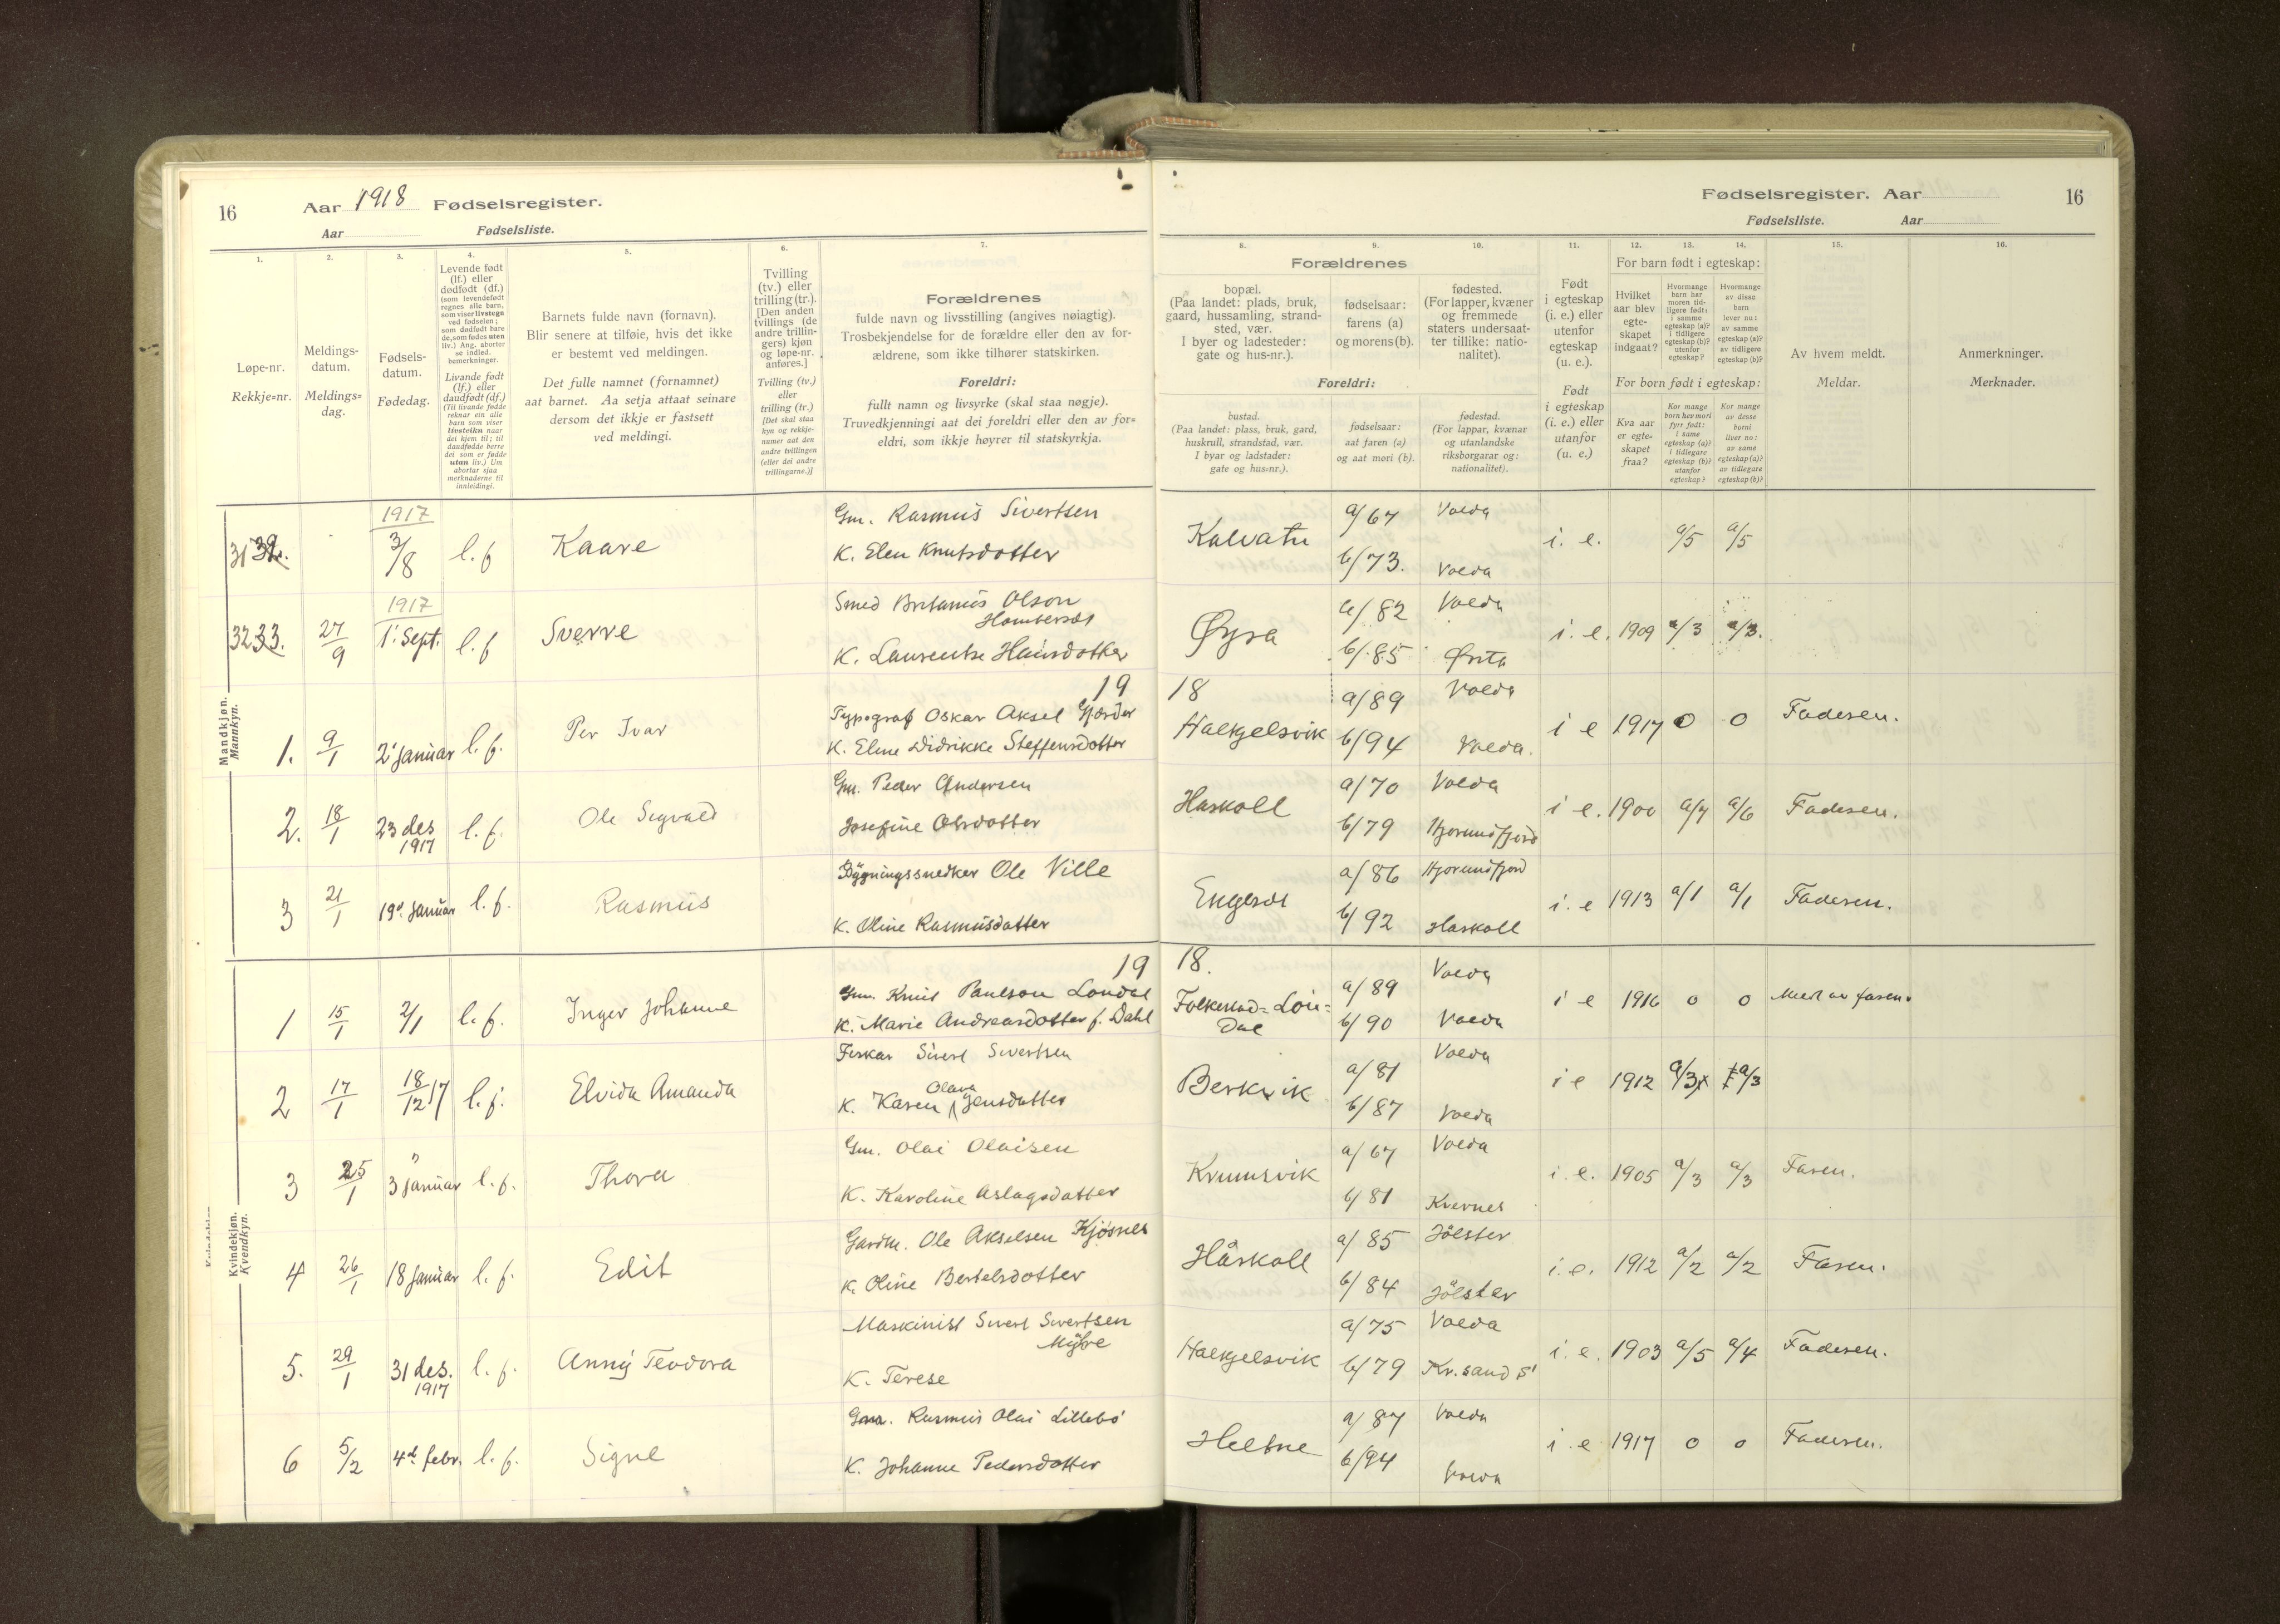 16 Aar 1918 Fødselsregister.
Aar Fødselsliste.
1. 2. 3. 4. 5. 6. 7.
Løpe-nr.
Rekkje=nr.
Meldings-
datum.
Meldings=
dag.
Fødsels-
datum.
Fødedag.
Levende født
(lf.) eller
dødfødt (df.)
(som levendefødt
regnes alle barn,
som viser livstegn
ved fødselen;
som dødfødt bare
de, som fødes uten
liv.) Ang. aborter
se indled.
bemerkninger.
Livande født
(lf.) eller
daudfødt (df.)
(Til livande fødde
reknar ein alle
barn som viser
livsteikn naar
dei kjem til; til
daudfødde berre
dei som er fødde
utan liv.) Um
abortar sjaa
merknaderne til
innleidingi.
Barnets fulde navn (fornavn).
Blir senere at tilføie, hvis det ikke
er bestemt ved meldingen.
Det fulle namnet (fornamnet)
aat barnet. Aa setja attaat seinare
dersom det ikkje er fastsett
ved meldingi.
Tvilling
(tv.) eller
trilling (tr.).
[Den anden
tvillings (de
andre trillin-
gers) kjøn
og løpe-nr.
anføres.]
Tvilling (tv.)
eller
trilling (tr.)
[Det skal staa
kyn og rekkje-
numer aat den
andre tvillingen
(eller dei andre
trillingarne.)]
Forældrenes
fulde navn og livsstilling (angives nøiagtig).
Trosbekjendelse for de forældre eller den av for-
ældrene, som ikke tilhører statskirken.
Foreldri:
fullt namn og livsyrke (skal staa nøgje).
Truvedkjenningi aat dei foreldri eller den av for=
eldri, som ikkje høyrer til statskyrkja.
Mandkjøn.
Mannkyn.
1917
31 3/8 l. f Kaare
Gm. Rasmus Sivertsen
K. Elen Knutsdotter
1917
32 33. 27/9 1' Sept. l. f Sverre
Smed Olson
K. Hansdotter
19
1. 9/1 2' januar l. f. Per Ivar
Typograf Oskar Aksel Gjærder
K. Eline Didrikke Steffensdotter
2. 18/1 23 des 1917 l. f. Ole Sigvald
Gm. Peder Andersen
Josefine Olsdotter
3 21/1 19d januar l. f. Rasmus
Bygningssnedker Ole Ville
K. Oline Rasmusdatter
Kvindekjøn.
Kvendkyn.
19
1 15/1 2/1 l. f. Inger Johanne
Gm. Knut Paulson Londal
K. Marie Andreasdotter f. Dahl
2 17/1 18/12 17 l. f. Elvida Amanda
Fiskar Sivert Sivertsen
K. Karen Olava Jensdatter
3 25/1 3 januar l. f. Thora
Gm. Olai Olaisen
K. Karoline Aslagsdatter
4 26/1 18 januar l. f. Edit
Gardm. Ole Akselsen Kjøsnes
K. Oline Bertelsdotter
5. 29/1 31 des. 1917 l. f. Anny Teodora
Maskinist Sivert Sivertsen
Myhre
K. Terese
6 5/2 4d febr. l. f. Signe
Gm. Rasmus Olai Lillebø
K. Johanne Pedersdotter
Fødselsregister. Aar 16
Fødselsliste. Aar
8. 9. 10. 11. 12. 13. 14. 15. 16.
Forældrenes
bopæl.
(Paa landet: plads, bruk,
gaard, hussamling, strand-
sted, vær.
I byer og ladesteder:
gate og hus-nr.).
fødselsaar:
farens (a)
og morens (b).
fødested.
(For lapper, kvæner
og fremmede
staters undersaat-
ter tillike: natio-
nalitet).
Foreldri:
bustad.
(Paa landet: plass, bruk, gard,
huskrull, strandstad, vær.
I byar og ladstader:
gate og hus=nr.).
fødselsaar:
aat faren (a)
og aat mori (b).
fødestad.
(For lappar, kvænar
og utanlandske
riksborgarar og:
nationalitet).
Født
i egteskap
(i. e.) eller
utenfor
egteskap
(u. e.).
Født
i egteskap
(i. e.) eller
utanfor
(u. e.)
For barn født i egteskap:
Hvilket
aar blev
egte-
skapet
indgaat?
Hvormange
barn har
moren tid-
ligere født:
i samme
egteskap (a)?
i tidligere
egteskap (b)?
utenfor
egteskap?
Hvormange
av disse
barn
lever nu:
av samme
egteskap (a)?
av tidligere
egteskap (b)?
For born født i egteskap:
Kva aar
er egte-
skapet
fraa?
Kor mange
born hev mori
fyrr født:
i same
egteskap (a)?
i tidlegare
egteskap (b)?
utanfor
egteskap?
Kor mange
av desse
borni
liver no:
av same
egteskap (a)?
av tidlegare
egteskap (b)?
Av hvem meldt.
Meldar.
Anmerkninger.
Merknader.
Kalvatn a/67 Volda i. e. a/5 a/5
b/73. Volda
Øyra a/82 Volda i. e. 1909 a/3 a/3.
b/85 Ørsta
18
Halkjelsvik a/89 Volda i e 1917 0 0 Faderen.
b/94 Volda.
Haskoll a/70 Volda i e. 1900 a/7 a/6 Faderen.
b/79 Hjorundfjord
Engeset a/86 Hjorundfjord i. e 1913 a/1 a/1 Faderen.
b/92 Haskoll
18.
Folkestad= a/89 Volda i e 1916 0 0 Meld av faren.
b/90 Volda
Berkvik a/81 Volda i e 1912 a/3 a/3
b/87 Volda
Krumsvik a/67 Volda i. e. 1905 a/3 a/3 Faren.
b/81 Kvernes
Håskoll a/85 Jölster i. e. 1912 a/2 a/2 Faren.
b/84 Jölster
Halkjelsvik a/75 Volda i. e. 1903 a/5 a/4 Faderen.
b/79 Kr.sand S'
Heltne a/87 Volda i e 1917 0 0 Faderen.
b/94 Volda